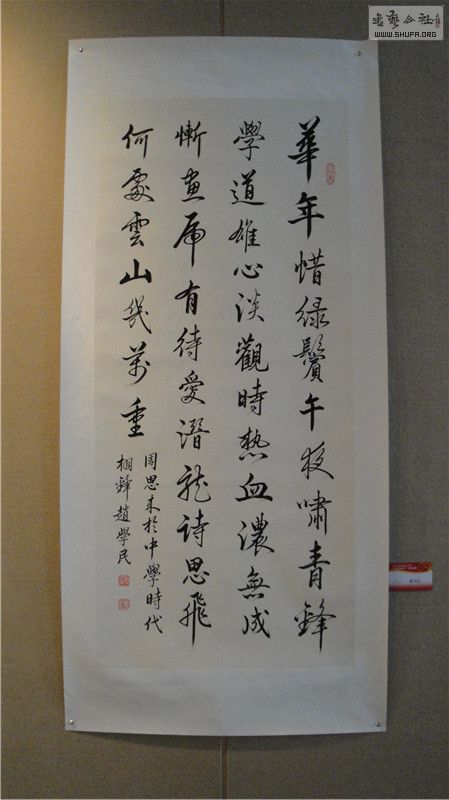 華年惜緑鬢午夜嘯青鋒
學道雄心淡觀時熱血濃無成
慚畫虎有待愛潛龍詩思飛
何處雲山幾萬重
周思来於中學時代
栩鋒趙學民
書藝公社
WWW.SHUFA.ORG